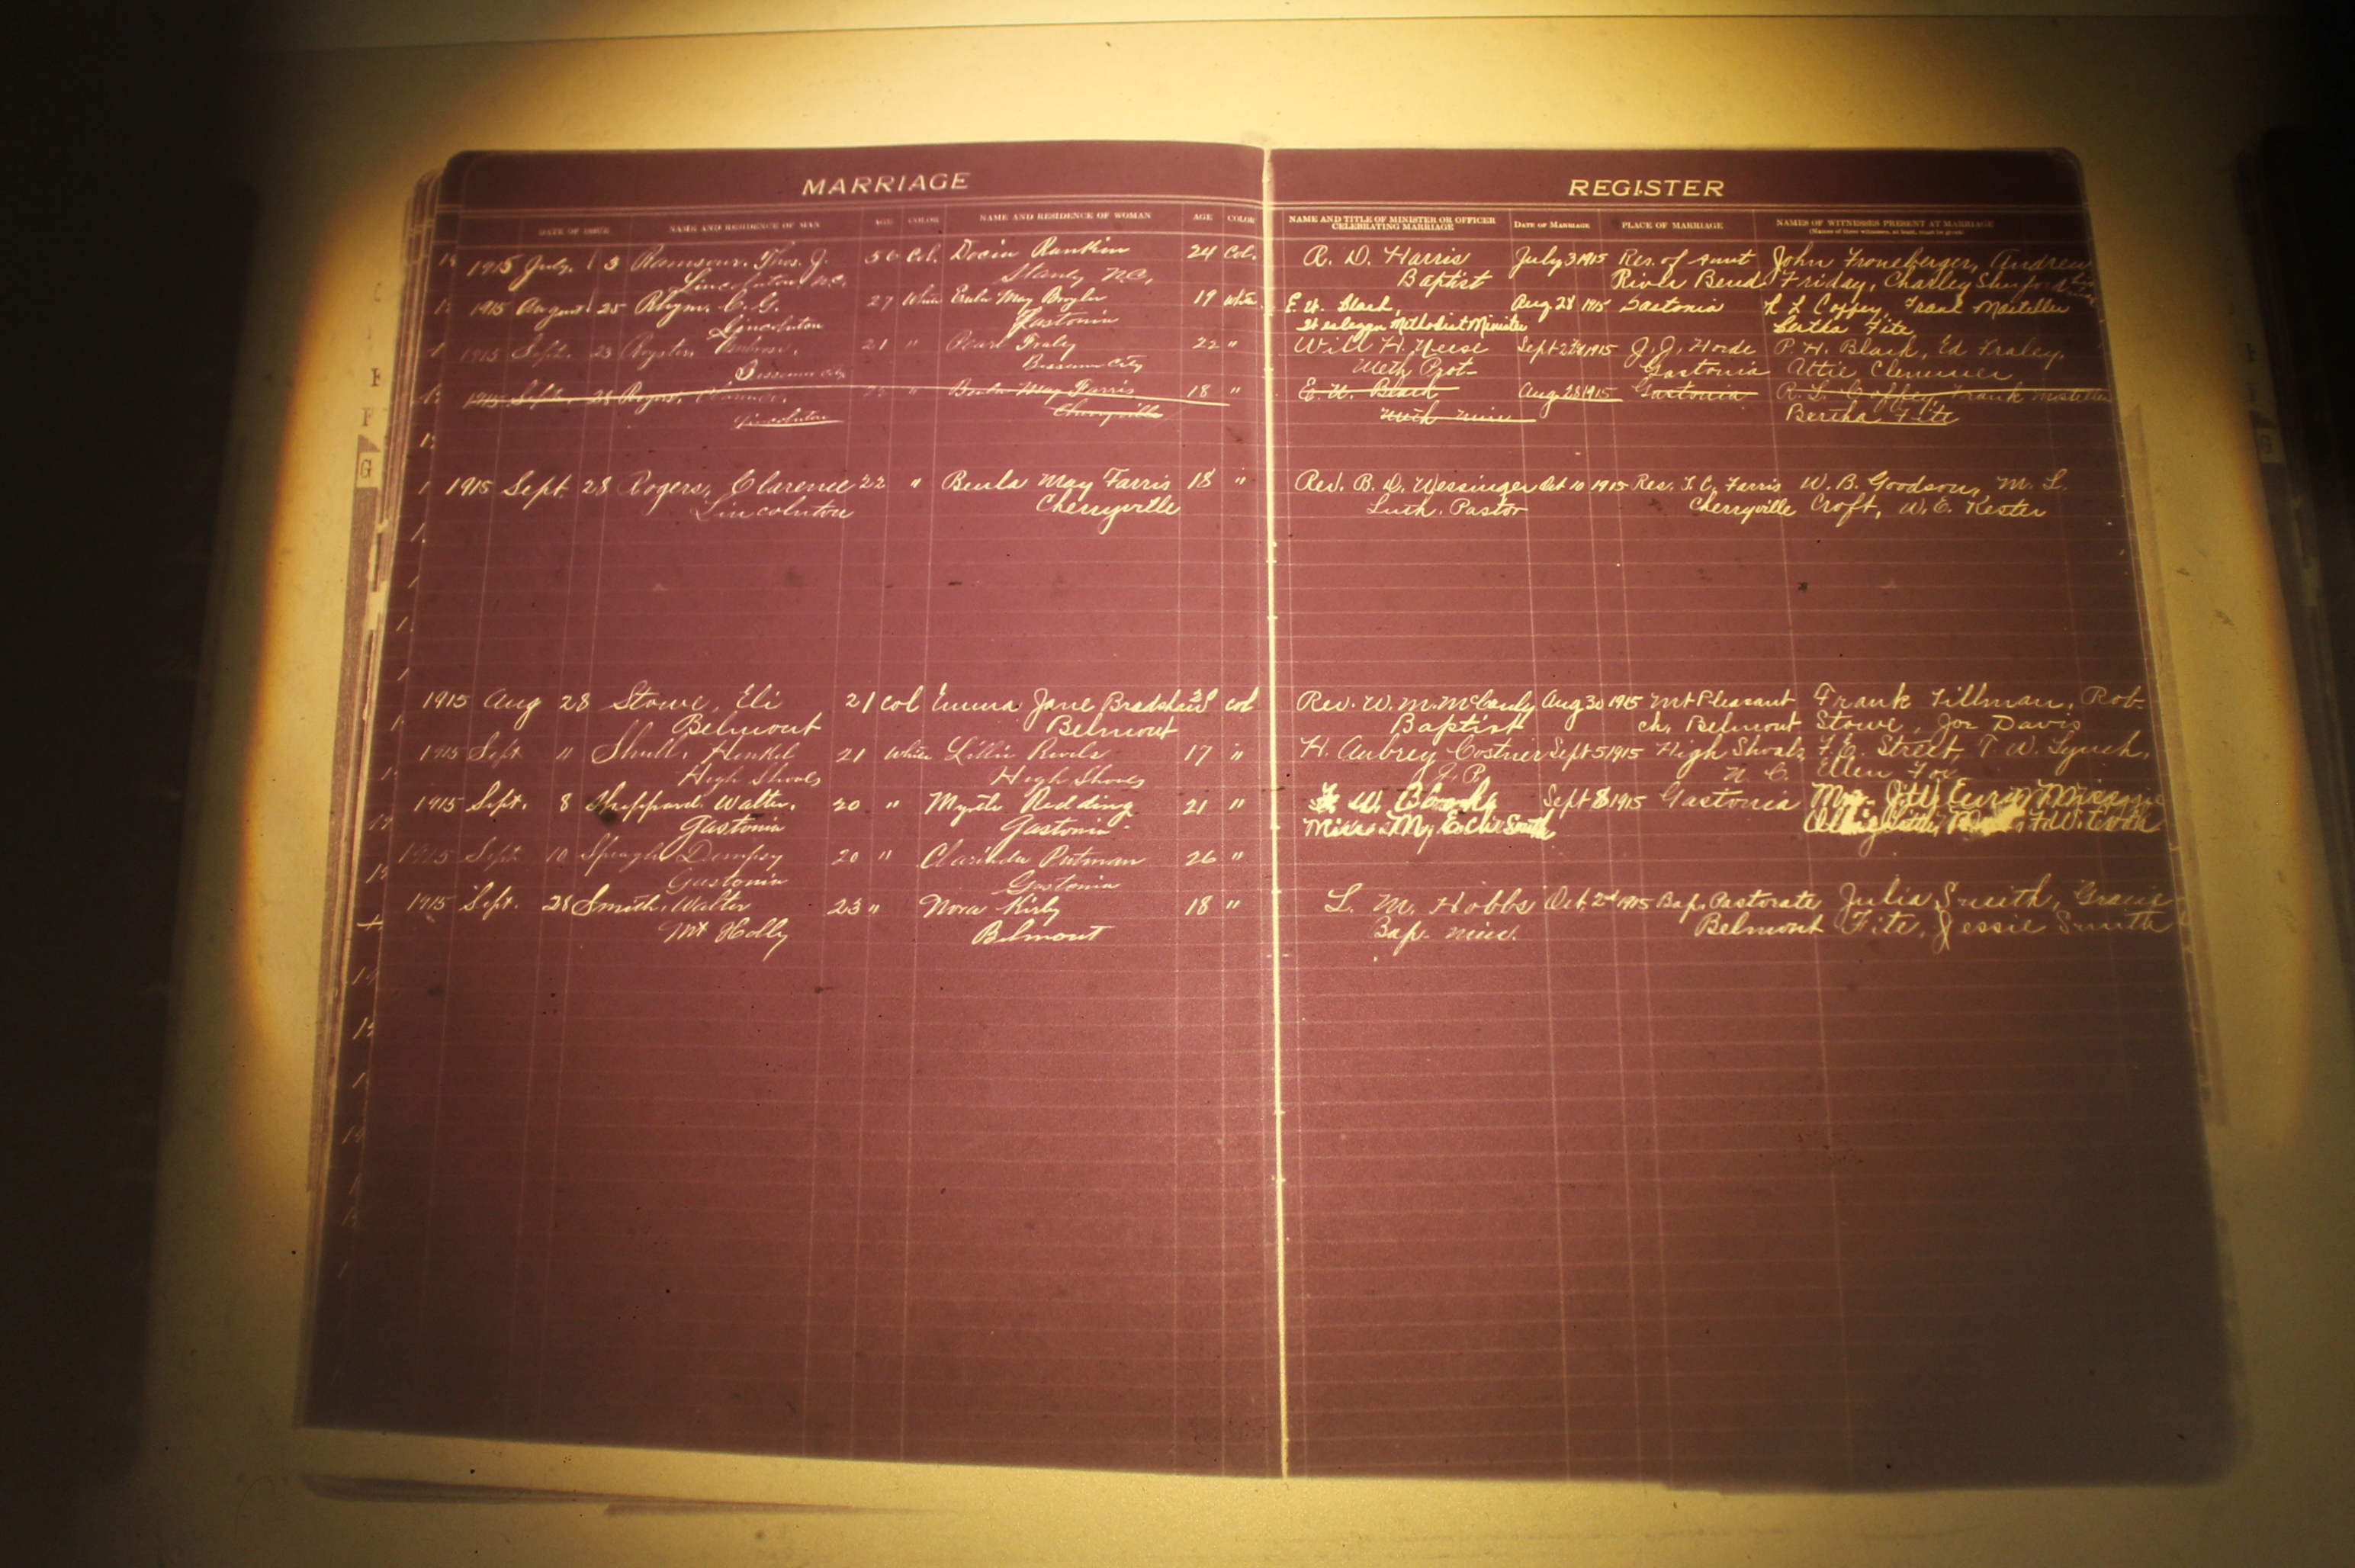 MARRIAGE
DATE OF ISSUE NAME AND RESIDENCE OF MAN AGE COLOR NAME AND RESIDENCE OF WOMAN AGE COLOR
1915 July 3 Ramsour, Thos. J. 56 Col. Docia Rankin 24 Col.
Lincolnton N.C. Stanly N.C.
1915 August 25 C. G. 27 White May 19 White
Lincolnton Gastonia
1915 Sept. 23 Royster, Ambrose. 21 " Pearl Fraley 22 "
Bessemer City Bessemer City
1915 Sept. 28 Rogers, Clarence. 22 " Beula May Farris 18 "
Lincolnton Cherryville
1915 Sept. 28 Rogers, Clarence 22 " Beula May Farris 18 "
Lincolnton Cherryville
1915 Aug 28 Stowe, Eli 21 col Emma Jane Bradshaw col
Belmont Belmont
1915 Sept " Shull, Henkel 21 White Lillie Rivels 17 "
High Shoals High Shoals
1915 Sept. 8 Sheppard Walter. 20 " Myrtle Redding 21 "
Gastonia Gastonia
1915 Sept. 10 Dempsey 20 " Clarinda Putman 26 "
Gastonia Gastonia
1915 Sept. 28 Smith, Walter 23 " Nora Kirby 18 "
Mt Holly Belmont
REGISTER
NAME AND TITLE OF MINISTER OR OFFICER CELEBRATING MARRIAGE DATE OF MARRIAGE PLACE OF MARRIAGE NAMES OF WITNESSES PRESENT AT MARRIAGE
(Names of three witnesses, at least, must be given)
R. D. Harris July 3 1915 Res. of John Froneberger, Andrew
Baptist River Bend Friday, Charley Shuford
E. W. Black, Aug. 28 1915 Gastonia R L Coffey, Frank Mosteller
Wesleyan Methodist Minister Bertha Fite
Will H. Neese Sept 1915 J. J. P. H. Black, Ed Fraley,
Meth Prot- Gastonia Attie Clemmer
E. W. Black Aug. 28 1915 Gastonia R. L. Coffey, Frank Mosteller
Meth Min Bertha Fite
Rev. B. D. Wessinger Oct 10 1915 Res. T. C. Farris W. B. Goodson, M. L.
Luth. Pastor Cherryville Croft, W. E. Kester
Rev. W. M. Aug 30 1915 Mt Pleasant Frank Tillman, Rob-
Baptist ch, Belmont Stowe, Joe Davis
H. Aubrey Costner Sept 5 1915 High Shoals F. E. Street, T. W. Lynch,
J. P. N. C. Ellen Fox
W. Sept 8 1915 Gastonia
Smith
L. M. Hobbs Oct. 2nd 1915 Bap. Pastorate Julia Smith, Gracie
Bap. min. Belmont Fite, Jessie Smith